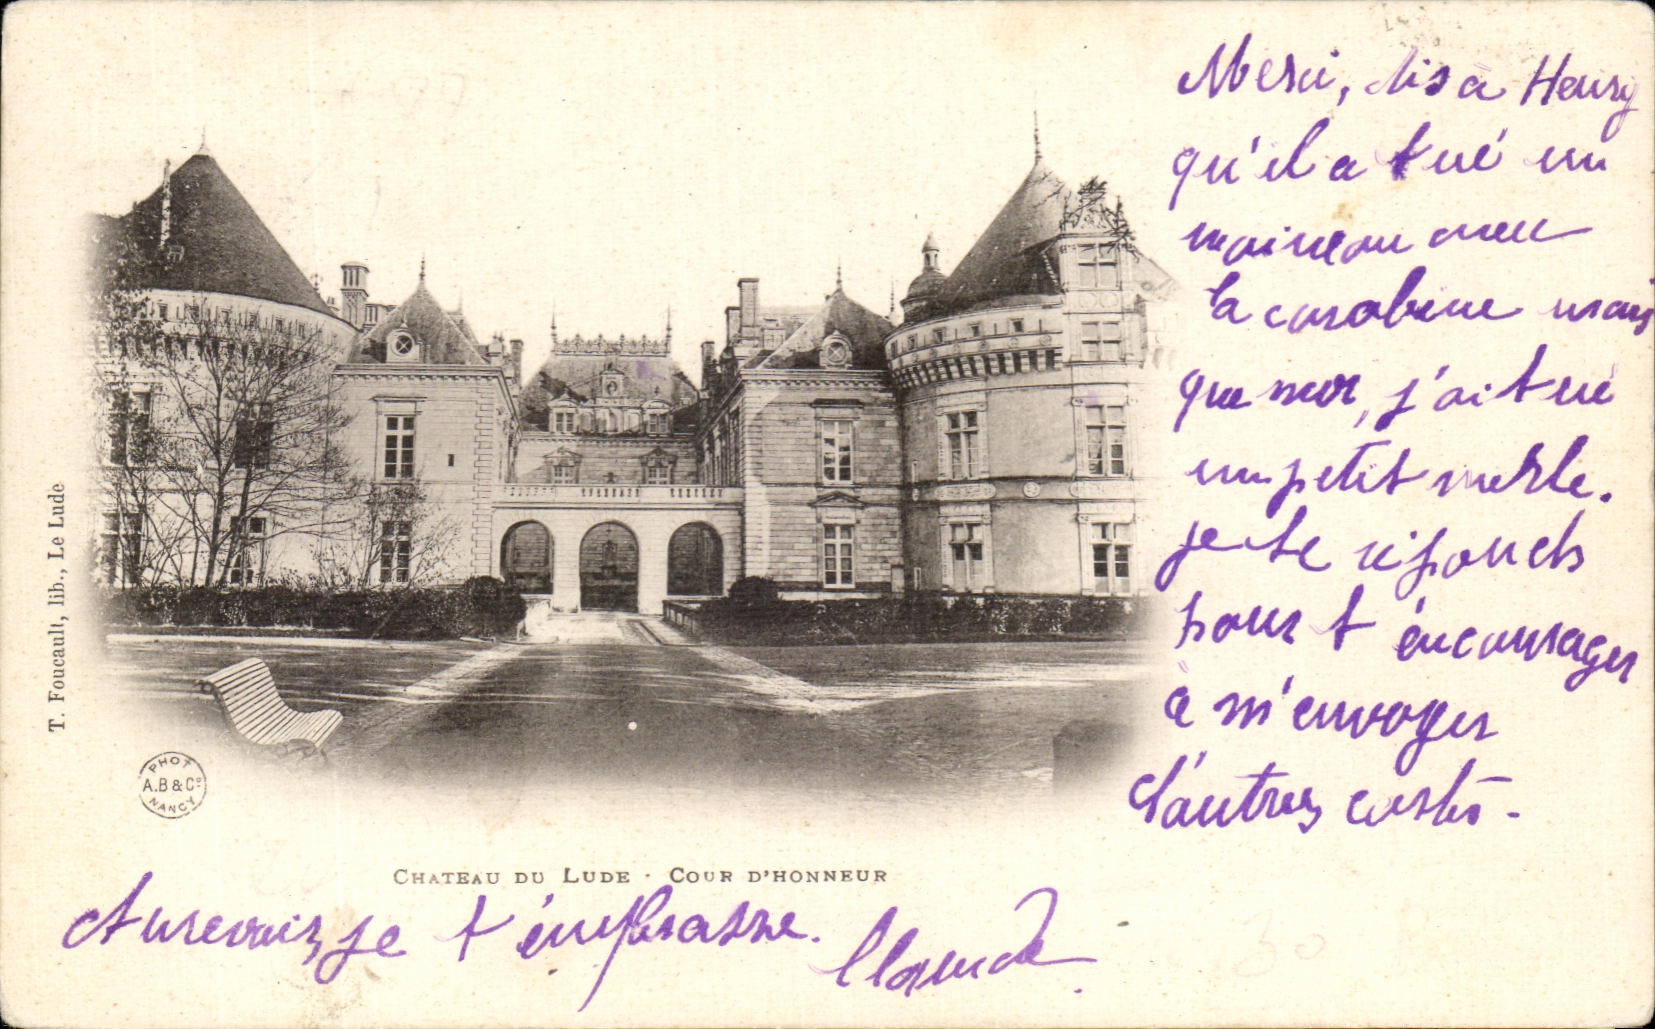 Merci, dis à Henry
qu'il a tué un
moineau avec
la carabine mais
que moi, j'ai tué
un petit merle.
je te réponds
pour t'encourager
à m'envoyer
d'autres cartes.
T. Foucault, lib., Le Lude
PHOT
A.B & Cie
NANCY
CHATEAU DU LUDE · COUR D'HONNEUR
Aurevoir, je t'embrasse.
Claude